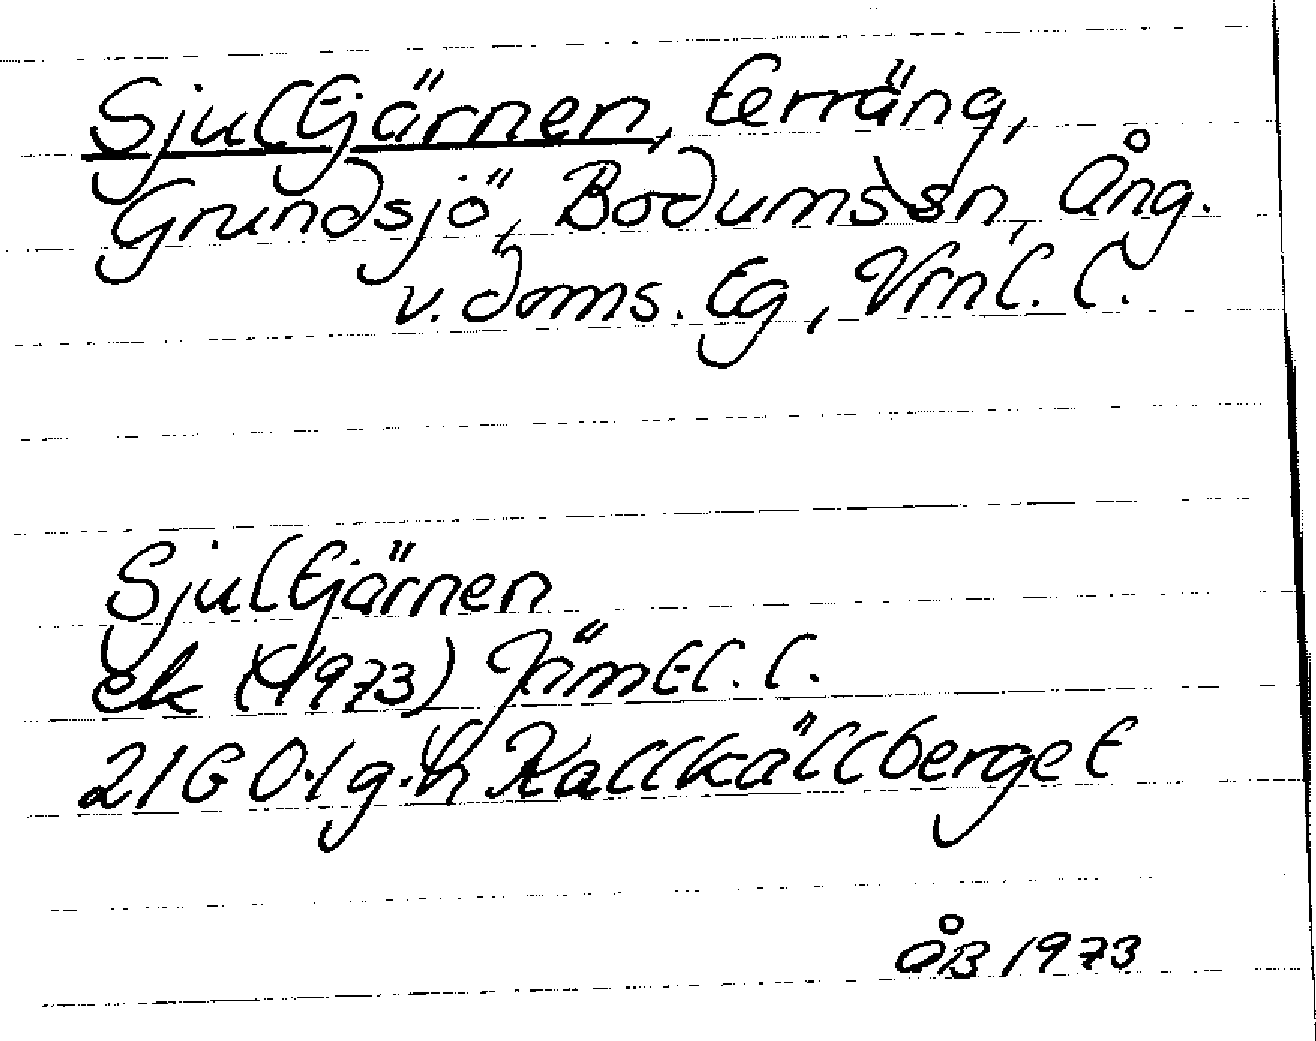 Sjultjärnen, terräng,
Grundsjö, Bodums sn, Ång.
v. doms. tg, Vrnl. l.
Sjultjärnen
ek (1973) Jämtl. l.
21G 0-1 g.h Kallkällberget
ÅB 1973